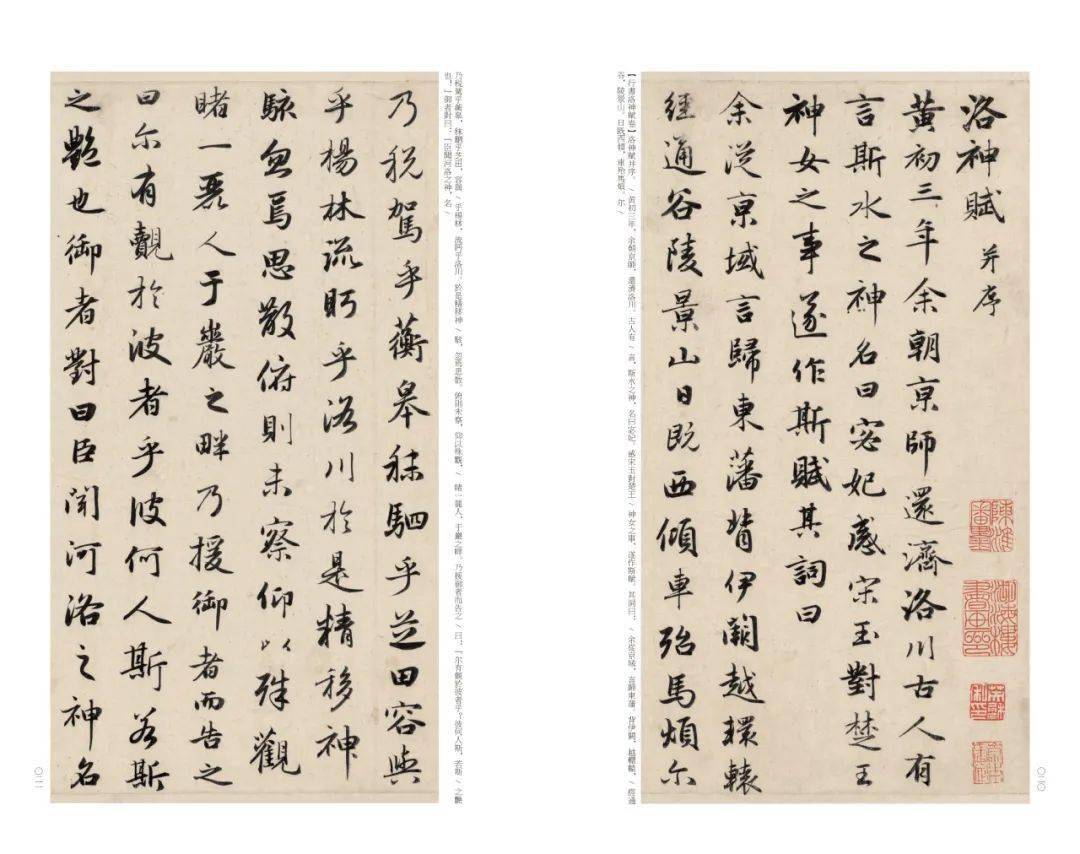 洛神賦 并序
黃初三年余朝京師還濟洛川古人有
言斯水之神名曰宓妃感宋玉對楚王
神女之事遂作斯賦其詞曰
余從京域言歸東藩背伊闕越轘轅
經通谷陵景山日既西傾車殆馬煩尔
【行書洛神賦卷】洛神賦并序。\ 黃初三年,余朝京師,還濟洛川。古人有 \ 言,斯水之神,名曰宓妃。感宋玉對楚王 \ 神女之事,遂作斯賦。其詞曰:\ 余從京域,言歸東藩。背伊闕,越轘轅,\ 經通
谷,陵景山。日既西傾,車殆馬煩。尔 \
〇二〇
乃稅駕乎蘅皋秣駟乎芝田容與
乎楊林流眄乎洛川於是精移神
駭忽焉思散俯則未察仰以殊觀
睹一麗人于巖之畔乃援御者而告之
曰尔有覿於彼者乎彼何人斯若斯
之艷也御者對曰臣聞河洛之神名
乃稅駕乎蘅皋,秣駟乎芝田,容與 \ 乎楊林,流眄乎洛川。於是精移神 \ 駭,忽焉思散。俯則未察,仰以殊觀,\ 睹一麗人,于巖之畔。乃援御者而告之 \ 曰:「尔有覿於彼者乎?彼何人斯,若斯 \ 之艷
也。」御者對曰:「臣聞河洛之神,名 \
〇二一